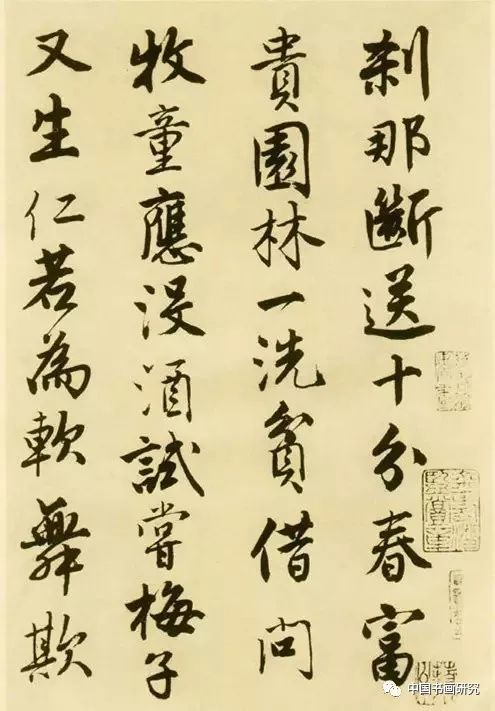 刹那斷送十分春富
貴園林一洗貧借問
牧童應沒酒試嘗梅子
又生仁若為軟舞欺
中国书画研究